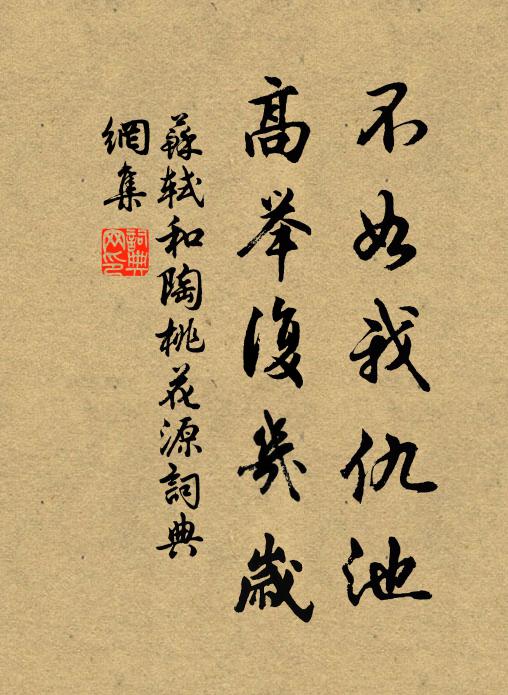 不如我仇池
高举復幾歳
蘇軾和陶桃花源詞典
網集
詞典網印